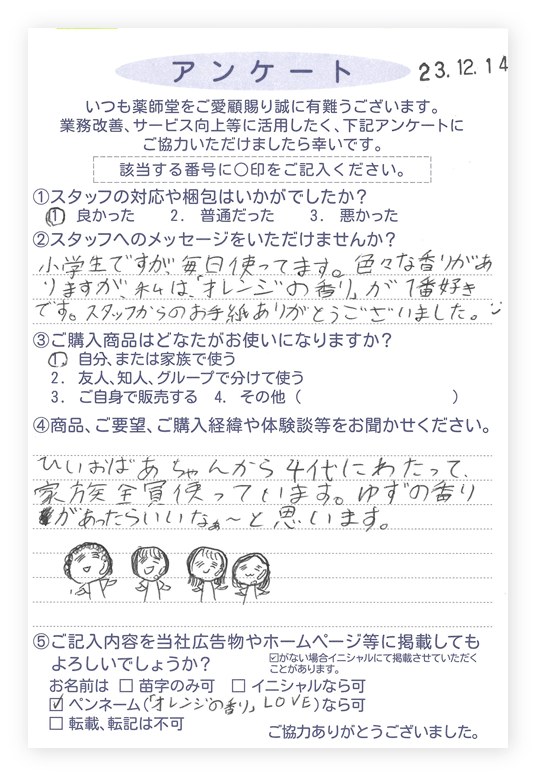 アンケート
23.12.14
いつも薬師堂をご愛顧賜り誠に有難うございます。
業務改善、サービス向上等に活用したく、下記アンケートに
ご協力いただけましたら幸いです。
該当する番号に○印をご記入ください。
①スタッフの対応や梱包はいかがでしたか?
① 良かった 2. 普通だった 3. 悪かった
②スタッフへのメッセージをいただけませんか?
小学生ですが、毎日使ってます。色々な香りがあ
りますが、私は、「オレンジの香り」が1番好き
です。スタッフからのお手紙ありがとうございました。
③ご購入商品はどなたがお使いになりますか?
①. 自分、または家族で使う
2. 友人、知人、グループで分けて使う
3. ご自身で販売する 4. その他( )
④商品、ご要望、ご購入経緯や体験談等をお聞かせください。
ひいおばあちゃんから4代にわたって、
家族全員使っています。ゆずの香り
があったらいいなぁ〜と思います。
⑤ご記入内容を当社広告物やホームページ等に掲載しても
よろしいでしょうか?
☑がない場合イニシャルにて掲載させていただく
ことがあります。
お名前は □ 苗字のみ可 □ イニシャルなら可
☑ ペンネーム(「オレンジの香り」LOVE)なら可
□ 転載、転記は不可
ご協力ありがとうございました。